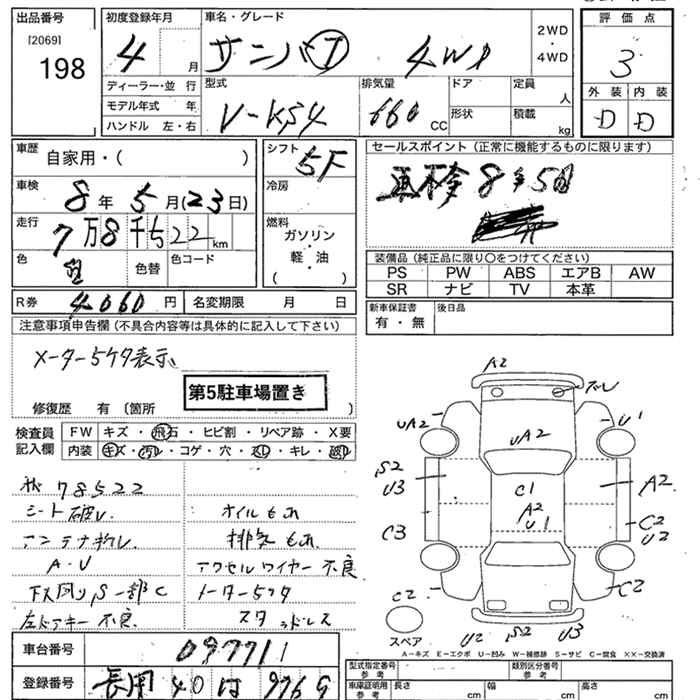 出品番号
[2069]
198
初度登録年月
4 月
車名・グレード
サンバー 4WD
2WD
・
4WD
評価点
3
外装 内装
D D
ディーラー・並行
モデル年式 年
ハンドル 左・右
型式
V-KS4
排気量
660 CC
ドア
形状
定員
人
積載
kg
車歴
自家用・( )
車検
8年5月(23日)
走行
7万8千522km
色 色替 色コード
R券 4060円 名変期限 月 日
シフト
5F
冷房
燃料
ガソリン
・
軽・油
( ・ )
セールスポイント(正常に機能するものに限ります)
車検8年5月
装備品(純正品に限り〇をつけてください)
PS PW ABS エアB AW
SR ナビ TV 本革
新車保証書
有・無
後日品
注意事項申告欄(不具合内容等は具体的に記入して下さい)
メーター5ケタ表示
第5駐車場置き
修復歴 有 〔箇所 〕
検査員
記入欄
FW キズ・飛石・ヒビ割・リペア跡・X要
内装 キズ・汚れ・コゲ・穴・スレ・キレ・破れ
78522
シート破れ
アンテナ折れ
A・U
下廻りS一部C
左ドアキー不良
オイルもれ
排気もれ
アクセルワイヤー不良
メーター5ケタ
スタッドレス
車台番号 097711
登録番号 長岡 40 は 9769
A2
UA2
U1
UA2
S2
U3
C1
A2
U1
A2
C3
C2
U2
C2
C2
U2 S2 U3
スペア
A-キズ E-エクボ U-凹み W-補修跡 S-サビ C-腐食 XX-交換済
型式指定番号
参考
類別区分番号
参考
車庫証明用
参考
長さ cm 幅 cm 高さ cm